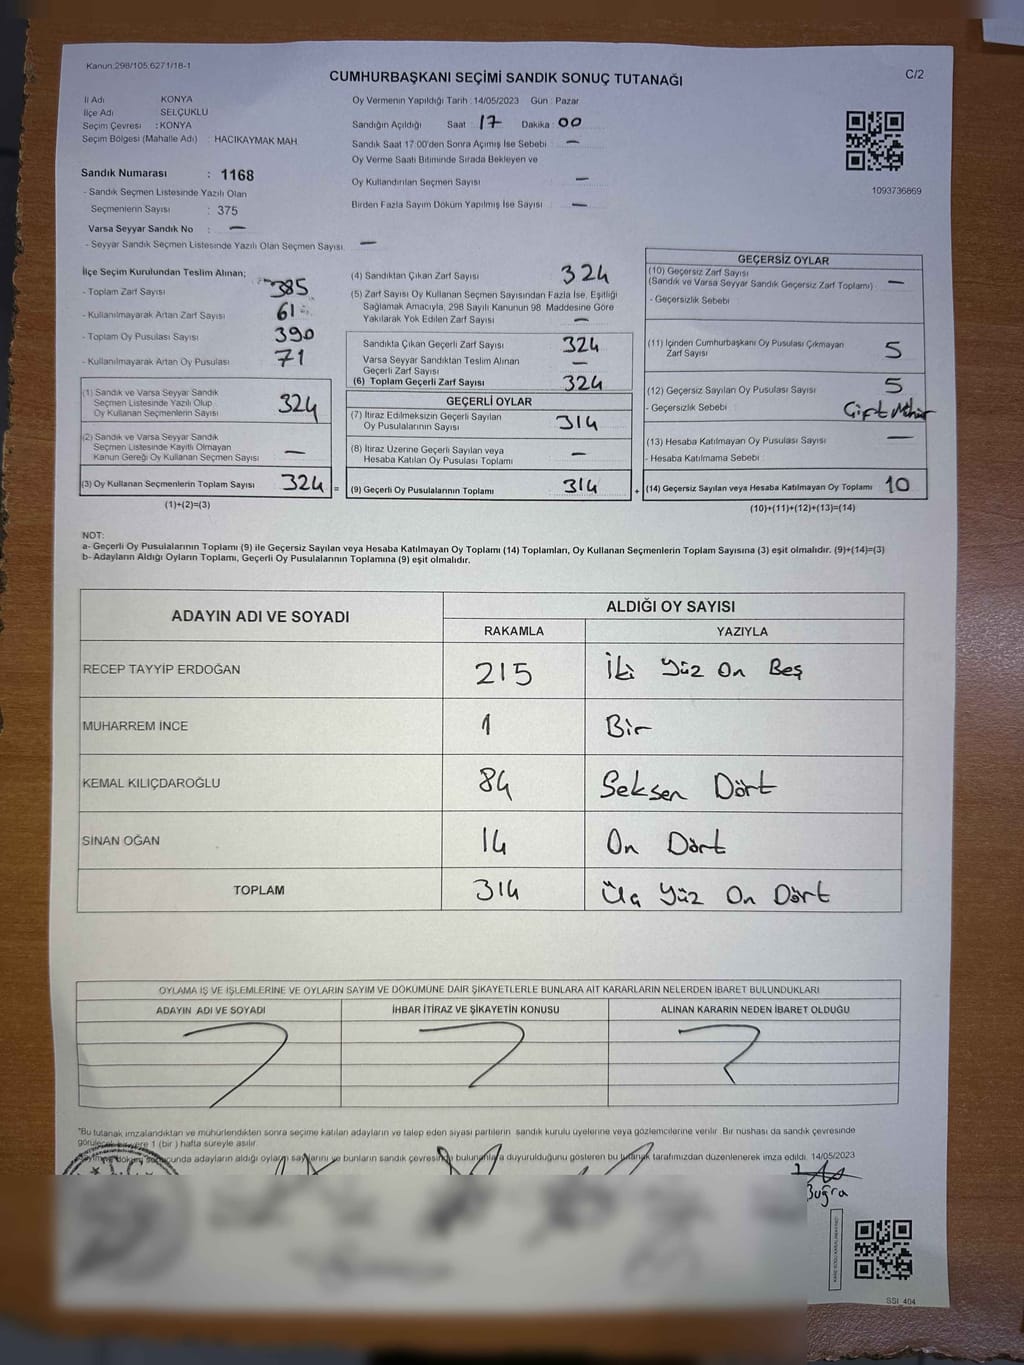 Kanun:298/105,6271/18-1
C/2
CUMHURBAŞKANI SEÇİMİ SANDIK SONUÇ TUTANAĞI
İl Adı KONYA
İlçe Adı SELÇUKLU
Seçim Çevresi : KONYA
Seçim Bölgesi (Mahalle Adı) : HACIKAYMAK MAH
Oy Vermenin Yapıldığı Tarih : 14/05/2023 Gün : Pazar
Sandığın Açıldığı Saat 17 Dakika 00
Sandık Saat 17:00'den Sonra Açılmış İse Sebebi —
Oy Verme Saati Bitiminde Sırada Bekleyen ve
Oy Kullandırılan Seçmen Sayısı —
Birden Fazla Sayım Döküm Yapılmış İse Sayısı —
1093736869
Sandık Numarası : 1168
- Sandık Seçmen Listesinde Yazılı Olan
Seçmenlerin Sayısı : 375
Varsa Seyyar Sandık No : —
- Seyyar Sandık Seçmen Listesinde Yazılı Olan Seçmen Sayısı —
İlçe Seçim Kurulundan Teslim Alınan;
- Toplam Zarf Sayısı 385
- Kullanılmayarak Artan Zarf Sayısı 61
- Toplam Oy Pusulası Sayısı 390
- Kullanılmayarak Artan Oy Pusulası 71
(1) Sandık ve Varsa Seyyar Sandık
Seçmen Listesinde Yazılı Olup
Oy Kullanan Seçmenlerin Sayısı 324
(2) Sandık ve Varsa Seyyar Sandık
Seçmen Listesinde Kayıtlı Olmayan
Kanun Gereği Oy Kullanan Seçmen Sayısı —
(3) Oy Kullanan Seçmenlerin Toplam Sayısı 324 =
(1)+(2)=(3)
(4) Sandıktan Çıkan Zarf Sayısı 324
(5) Zarf Sayısı Oy Kullanan Seçmen Sayısından Fazla İse, Eşitliği
Sağlamak Amacıyla, 298 Sayılı Kanunun 98. Maddesine Göre
Yakılarak Yok Edilen Zarf Sayısı —
Sandıkta Çıkan Geçerli Zarf Sayısı 324
Varsa Seyyar Sandıktan Teslim Alınan
Geçerli Zarf Sayısı —
(6) Toplam Geçerli Zarf Sayısı 324
GEÇERLİ OYLAR
(7) İtiraz Edilmeksizin Geçerli Sayılan
Oy Pusulalarının Sayısı 314
(8) İtiraz Üzerine Geçerli Sayılan veya
Hesaba Katılan Oy Pusulası Toplamı —
(9) Geçerli Oy Pusulalarının Toplamı 314 +
GEÇERSİZ OYLAR
(10) Geçersiz Zarf Sayısı
(Sandık ve Varsa Seyyar Sandık Geçersiz Zarf Toplamı) —
- Geçersizlik Sebebi
(11) İçinden Cumhurbaşkanı Oy Pusulası Çıkmayan
Zarf Sayısı 5
(12) Geçersiz Sayılan Oy Pusulası Sayısı 5
- Geçersizlik Sebebi Çift Mühür
(13) Hesaba Katılmayan Oy Pusulası Sayısı —
- Hesaba Katılmama Sebebi
(14) Geçersiz Sayılan veya Hesaba Katılmayan Oy Toplamı 10
(10)+(11)+(12)+(13)=(14)
NOT:
a- Geçerli Oy Pusulalarının Toplamı (9) ile Geçersiz Sayılan veya Hesaba Katılmayan Oy Toplamı (14) Toplamları, Oy Kullanan Seçmenlerin Toplam Sayısına (3) eşit olmalıdır. (9)+(14)=(3)
b- Adayların Aldığı Oyların Toplamı, Geçerli Oy Pusulalarının Toplamına (9) eşit olmalıdır.
ADAYIN ADI VE SOYADI ALDIĞI OY SAYISI
RAKAMLA YAZIYLA
RECEP TAYYİP ERDOĞAN 215 İki Yüz On Beş
MUHARREM İNCE 1 Bir
KEMAL KILIÇDAROĞLU 84 Seksen Dört
SİNAN OĞAN 14 On Dört
TOPLAM 314 Üç Yüz On Dört
OYLAMA İŞ VE İŞLEMLERİNE VE OYLARIN SAYIM VE DÖKÜMÜNE DAİR ŞİKAYETLERLE BUNLARA AİT KARARLARIN NELERDEN İBARET BULUNDUKLARI
ADAYIN ADI VE SOYADI İHBAR İTİRAZ VE ŞİKAYETİN KONUSU ALINAN KARARIN NEDEN İBARET OLDUĞU
*Bu tutanak imzalandıktan ve mühürlendikten sonra seçime katılan adayların ve talep eden siyasi partilerin sandık kurulu üyelerine veya gözlemcilerine verilir. Bir nüshası da sandık çevresinde
görülecek bir yere 1 (bir ) hafta süreyle asılır.
adayların aldığı oyların sayılarını ve bunların sandık çevresinde bulunanlara duyurulduğunu gösteren bu tutanak tarafımızdan düzenlenerek imza edildi. 14/05/2023
Buğra
SSİ_404